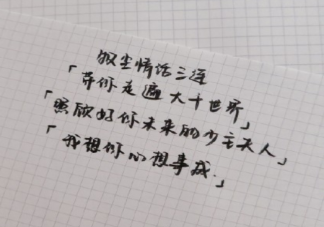 叙尘情话三连
「带你走遍大千世界」
「照欣好你未来的少主夫人」
「我想你心想事成.」